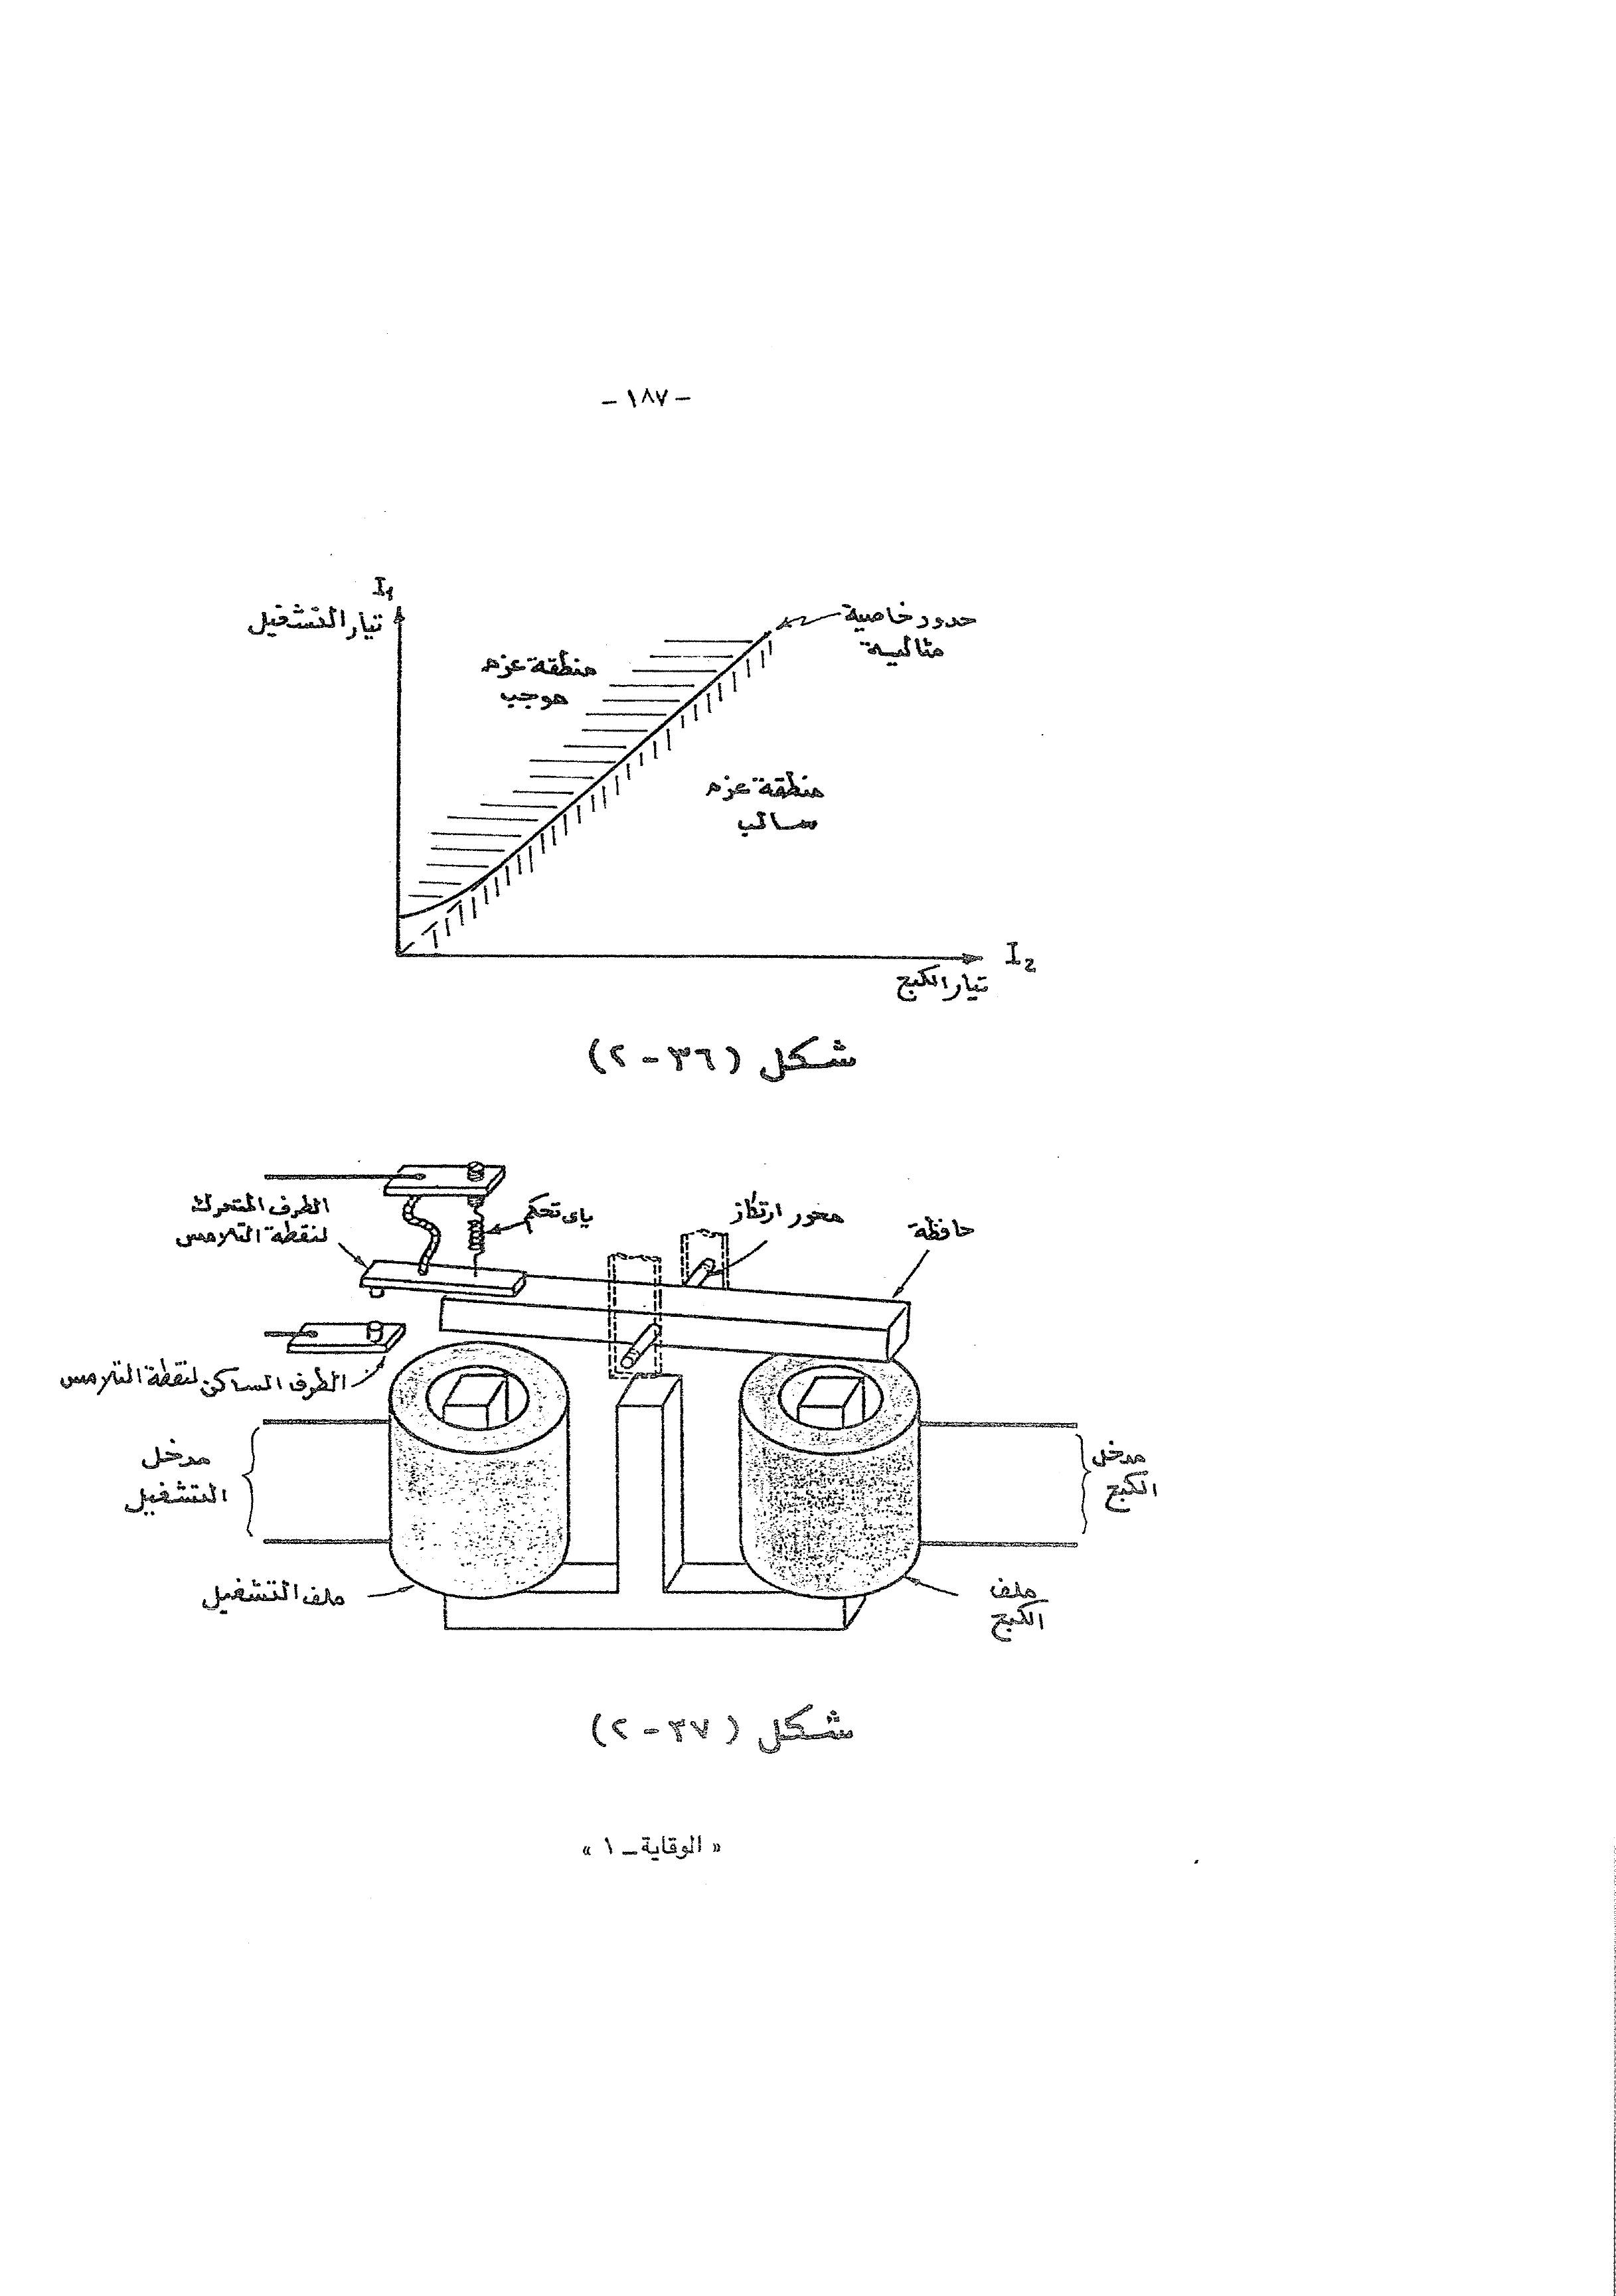 - ١٨٧ -
I₁
تيار التشغيل
حدود خاصية
مثالية
منطقة عزم
موجب
منطقة عزم
سالب
I₂
تيار الكبح
شكل (٣٦ - ٢)
الطرف المتحرك
لنقطة التلامس
ياى تحكم
محور ارتكاز
حافظة
الطرف الساكن لنقطة التلامس
مدخل
التشغيل
مدخل
الكبح
ملف التشغيل
ملف
الكبح
شكل (٣٧ - ٢)
« الوقاية ــ ١ »